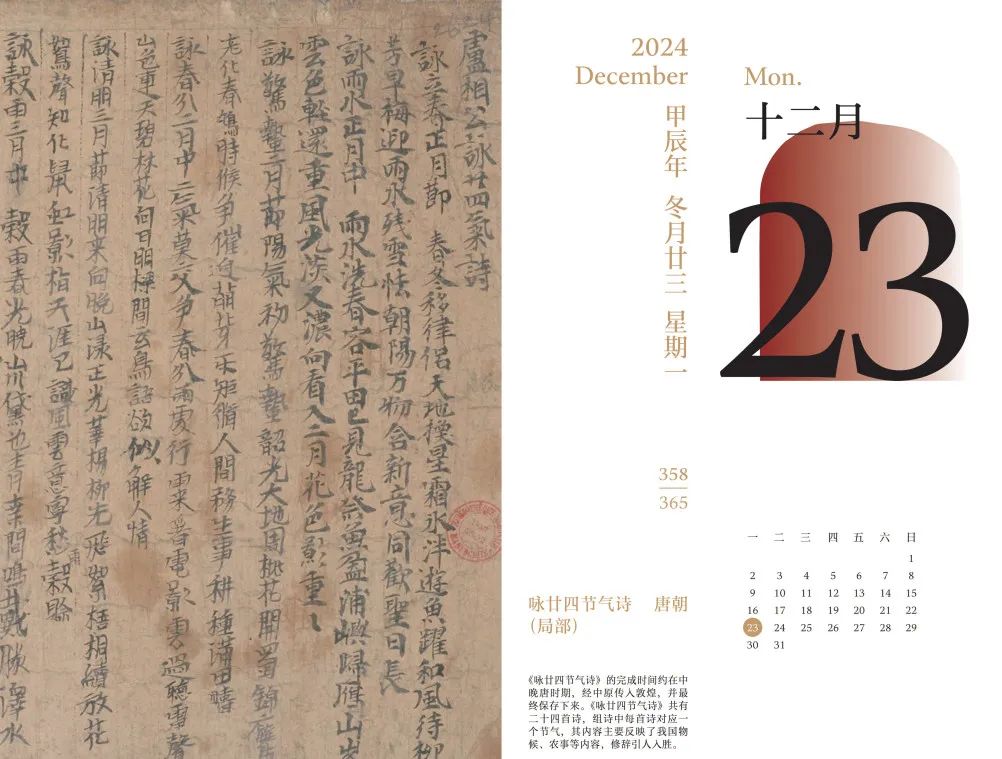 盧相公詠廿四氣詩
詠立春正月節 春冬移律侶天地換星霜氷泮遊魚躍和風待柳
芳早梅迎雨水残雪怯朝陽万物含新意同歡聖日長
詠雨水正月中 雨水洗春容平田已見龍祭魚盈浦嶼歸雁山峯
雲色輕還重風光淡又濃向看入二月花色影重〻
詠驚蟄二月節陽氣初驚蟄韶光大地周桃花開蜀錦鷹
老化春鳩時候争催迫萌芽矩脩人間務生事耕種满田疇
詠春分二月中 二氣莫交爭春分雨處行雨來看電影雲過聽雷聲
山色連天碧林花向日明樑間玄鳥語欲似解人情
詠清明三月節清明來向晚山渌正光華楊柳先飛絮梧桐續放花
鴽聲知化鼠虹影指天涯已識風雲意寧愁雨穀賒
詠穀雨三月中 穀雨春光曉山川黛色青桒間鳴戴勝澤水
2024
December
甲辰年 冬月廿三 星期一
Mon.
十二月
23
358
365
咏廿四节气诗 唐朝
（局部）
《咏廿四节气诗》的完成时间约在中
晚唐时期，经中原传入敦煌，并最
终保存下来。《咏廿四节气诗》共有
二十四首诗，组诗中每首诗对应一
个节气，其内容主要反映了我国物
候、农事等内容，修辞引人入胜。
一 二 三 四 五 六 日
1
2 3 4 5 6 7 8
9 10 11 12 13 14 15
16 17 18 19 20 21 22
23 24 25 26 27 28 29
30 31